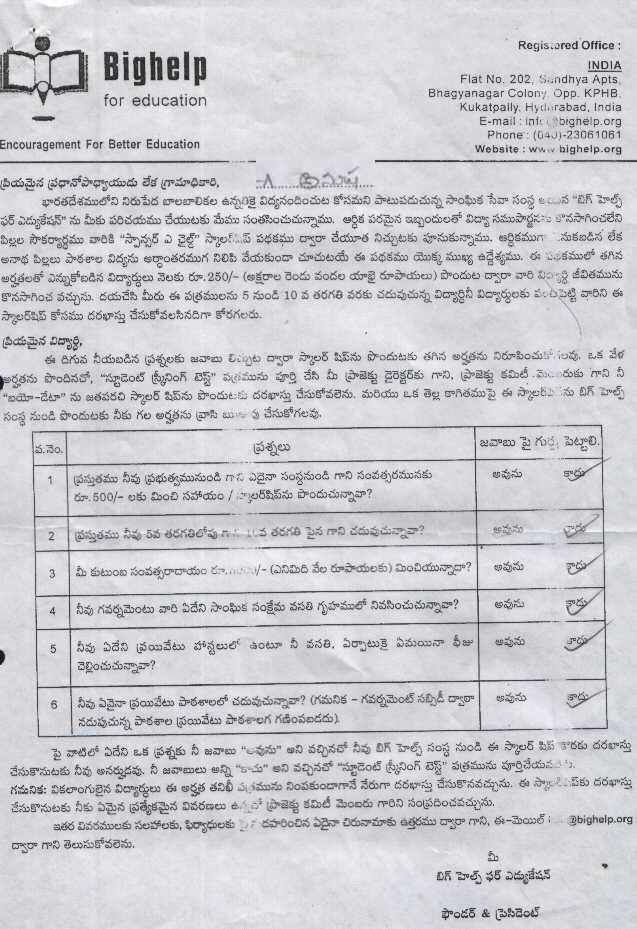 Bighelp
for education
Encouragement For Better Education
Registered Office :
INDIA
Flat No. 202, Sandhya Apts,
Bhagyanagar Colony, Opp. KPHB,
Kukatpally, Hyderabad, India
E-mail : info@bighelp.org
Phone : (040)-23061061
Website : www.bighelp.org
ప్రియమైన ప్రధానోపాధ్యాయుడు లేక గ్రామాధికారి,
భారతదేశములోని నిరుపేద బాలబాలికల ఉన్నతికై విద్యనందించుట కోసమని పాటుపడుచున్న సాంఘిక సేవా సంస్థ అయిన "బిగ్ హెల్ప్
ఫర్ ఎడ్యుకేషన్" ను మీకు పరిచయము చేయుటకు మేము సంతసించుచున్నాము. ఆర్థిక పరమైన ఇబ్బందులతో విద్యా సముపార్జనను కొనసాగించలేని
పిల్లల సౌకర్యార్థము వారికి "స్పాన్సర్ ఎ ఛైల్డ్" స్కాలర్‌షిప్ పథకము ద్వారా చేయూత నిచ్చుటకు పూనుకున్నాము. ఆర్థికముగా వెనుకబడిన లేక
అనాథ పిల్లలు పాఠశాల విద్యను అర్ధాంతరముగ నిలిపి వేయకుండా చూచుటయే ఈ పథకము యొక్క ముఖ్య ఉద్దేశ్యము. ఈ పథకములో తగిన
అర్హతలతో ఎన్నుకోబడిన విద్యార్థులు నెలకు రూ.250/- (అక్షరాల రెండు వందల యాభై రూపాయలు) పొందుట ద్వారా వారి విద్యార్థి జీవితమును
కొనసాగించ వచ్చును. దయచేసి మీరు ఈ పత్రములను 5 నుండి 10 వ తరగతి వరకు చదువుచున్న విద్యార్థినీ విద్యార్థులకు పంచిపెట్టి వారిని ఈ
స్కాలర్‌షిప్ కోసము దరఖాస్తు చేసుకోవలసినదిగా కోరగలరు.
ప్రియమైన విద్యార్థి,
ఈ దిగువ నీయబడిన ప్రశ్నలకు జవాబు లిచ్చుట ద్వారా స్కాలర్ షిప్‌ను పొందుటకు తగిన అర్హతను నిరూపించుకోగలవు. ఒక వేళ
అర్హతను పొందినచో, "స్టూడెంట్ స్క్రీనింగ్ టెస్ట్" పత్రమును పూర్తి చేసి మీ ప్రాజెక్టు డైరెక్టర్‌కు గాని, ప్రాజెక్టు కమిటీ మెంబరుకు గాని నీ
"బయో-డేటా" ను జతపరచి స్కాలర్ షిప్‌ను పొందుటకు దరఖాస్తు చేసుకోవలెను. మరియు ఒక తెల్ల కాగితముపై ఈ స్కాలర్‌షిప్‌ను బిగ్ హెల్ప్
సంస్థ నుండి పొందుటకు నీకు గల అర్హతను వ్రాసి చేసుకోగలవు.
వ.నెం. ప్రశ్నలు జవాబు పై గుర్తు పెట్టాలి.
1 ప్రస్తుతము నీవు ప్రభుత్వమునుండి గాని ఏదైనా సంస్థనుండి గాని సంవత్సరమునకు అవును కాదు
రూ.500/- లకు మించి సహాయం / స్కాలర్‌షిప్‌ను పొందుచున్నావా?
2 ప్రస్తుతము నీవు 5వ తరగతిలోపు గాని 10వ తరగతి పైన గాని చదువుచున్నావా? అవును కాదు
3 మీ కుటుంబ సంవత్సరాదాయం రూ.8000/- (ఎనిమిది వేల రూపాయలకు) మించియున్నాదా? అవును కాదు
4 నీవు గవర్నమెంటు వారి ఏదేని సాంఘిక సంక్షేమ వసతి గృహములో నివసించుచున్నావా? అవును కాదు
5 నీవు ఏదేని ప్రయివేటు హాస్టలులో ఉంటూ నీ వసతి, ఏర్పాటుకై ఏమయినా ఫీజు అవును కాదు
చెల్లించుచున్నావా?
6 నీవు ఏవైనా ప్రయివేటు పాఠశాలలో చదువుచున్నావా? (గమనిక - గవర్నమెంట్ సబ్సిడీ ద్వారా అవును కాదు
నడుపుచున్న పాఠశాల ప్రయివేటు పాఠశాలగ గణింపబడదు).
పై వాటిలో ఏదేని ఒక ప్రశ్నకు నీ జవాబు "అవును" అని వచ్చినచో నీవు బిగ్ హెల్ప్ సంస్థ నుండి ఈ స్కాలర్ షిప్ కొరకు దరఖాస్తు
చేసుకొనుటకు నీవు అనర్హుడవు. నీ జవాబులు అన్ని "కాదు" అని వచ్చినచో "స్టూడెంట్ స్క్రీనింగ్ టెస్ట్" పత్రమును పూర్తిచేయవలెను.
గమనిక: వికలాంగులైన విద్యార్థులు ఈ అర్హత తనిఖీ పత్రమును నింపకుండాగానే నేరుగా దరఖాస్తు చేసుకొనవచ్చును. ఈ స్కాలర్‌షిప్‌కు దరఖాస్తు
చేసుకొనుటకు నీకు ఏమైన ప్రత్యేకమైన వివరణలు ఉన్నచో ప్రాజెక్టు కమిటీ మెంబరు గారిని సంప్రదించవచ్చును.
ఇతర వివరములకు సలహాలకు, ఫిర్యాదులకు పైన ఉదహరించిన ఏదైనా చిరునామాకు ఉత్తరము ద్వారా గాని, ఈ-మెయిల్ @bighelp.org
ద్వారా గాని తెలుసుకోవలెను.
మీ
బిగ్ హెల్ప్ ఫర్ ఎడ్యుకేషన్
ఫౌండర్ & ప్రెసిడెంట్